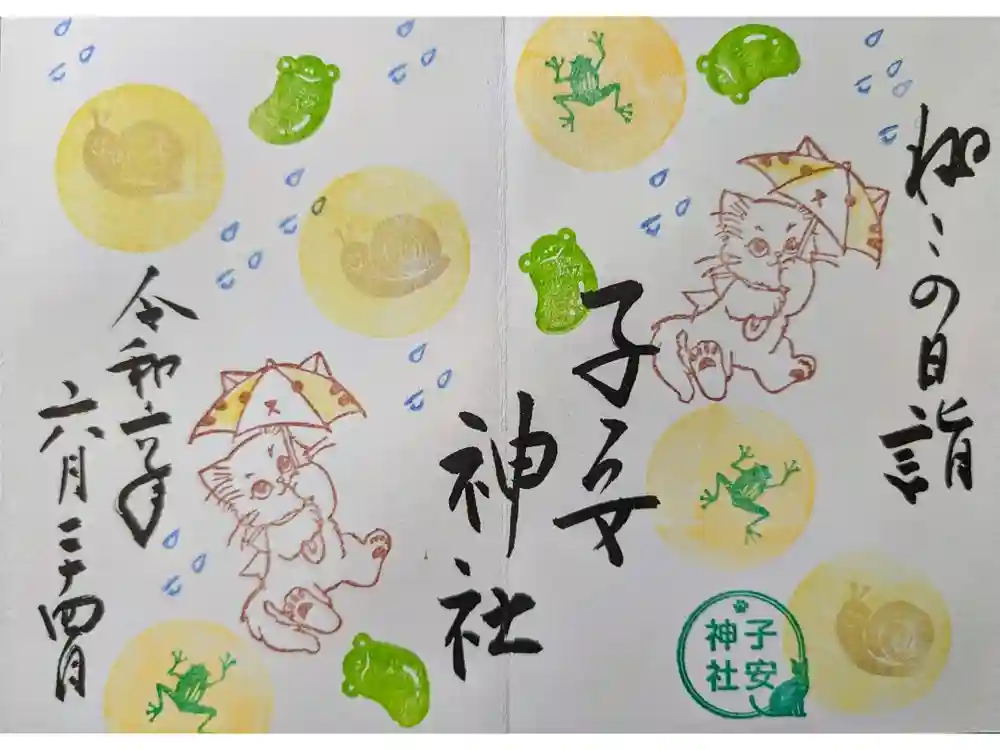 ねこの日詣
子安
神社
令和六年
六月二十四日
子安
神社
ス
ス